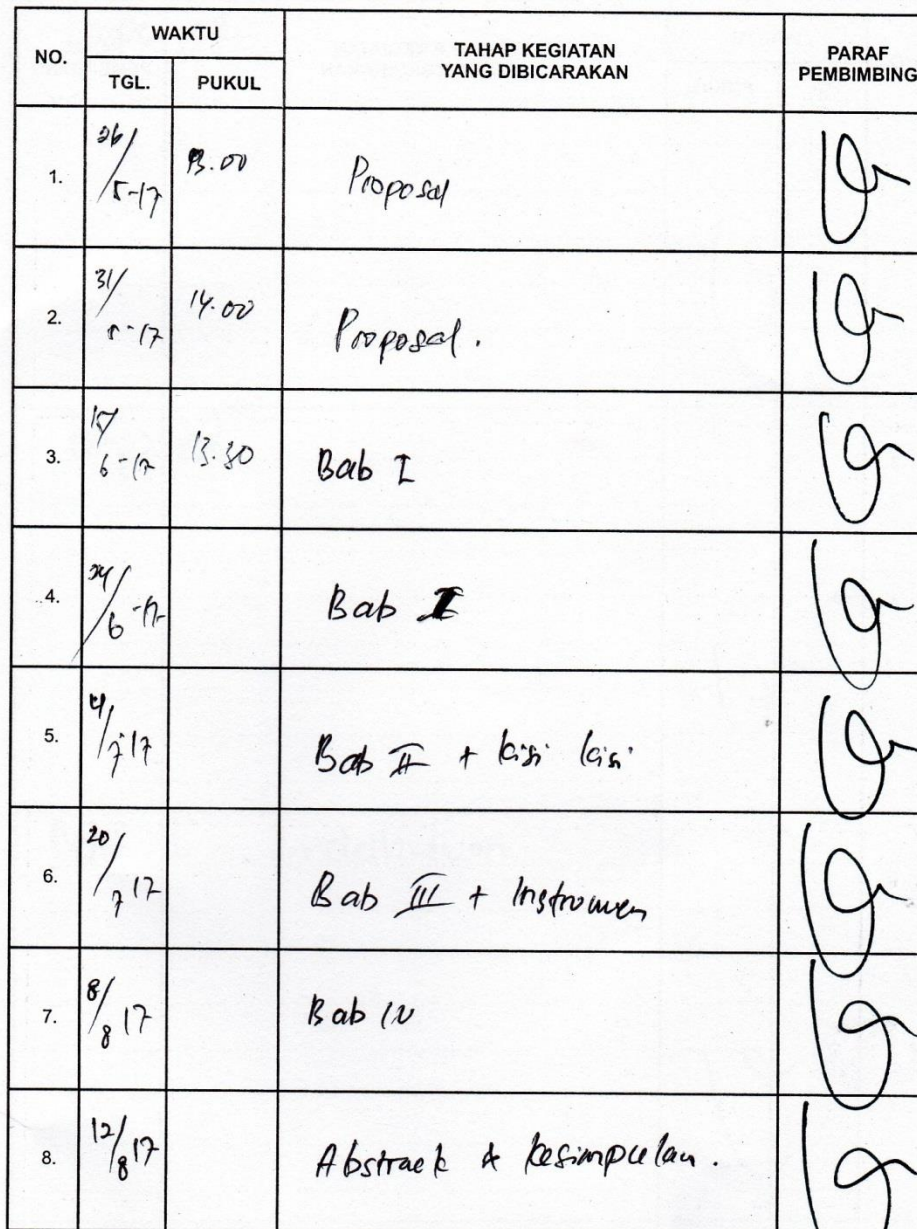 NO. WAKTU TAHAP KEGIATAN YANG DIBICARAKAN PARAF PEMBIMBING
TGL. PUKUL
1. 26/5-17 13.00 Proposal
2. 31/5-17 14.00 Proposal.
3. 15/6-17 13.30 Bab I
4. 24/6-17 Bab II
5. 4/7-17 Bab II + kisi kisi
6. 20/7 17 Bab III + Instrumen
7. 8/8 17 Bab IV
8. 12/8 17 Abstrack & kesimpulan.